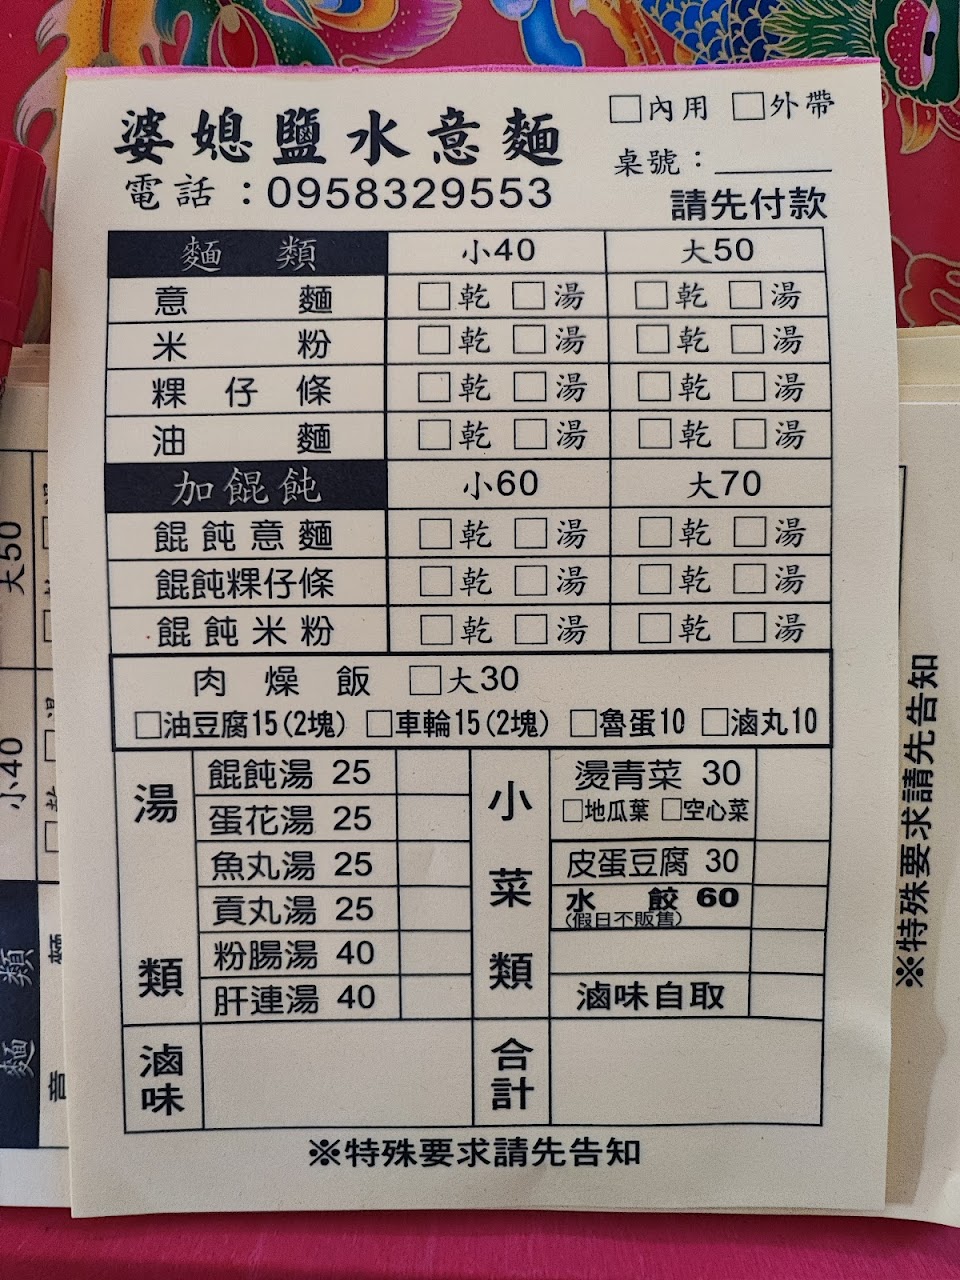 婆媳鹽水意麵
□內用 □外帶
桌號：
電話：0958329553
請先付款
麵類 小40 大50
意麵 □乾 □湯 □乾 □湯
米粉 □乾 □湯 □乾 □湯
粿仔條 □乾 □湯 □乾 □湯
油麵 □乾 □湯 □乾 □湯
加餛飩 小60 大70
餛飩意麵 □乾 □湯 □乾 □湯
餛飩粿仔條 □乾 □湯 □乾 □湯
餛飩米粉 □乾 □湯 □乾 □湯
肉燥飯 □大30
□油豆腐15(2塊) □車輪15(2塊) □魯蛋10 □滷丸10
湯類
餛飩湯 25
蛋花湯 25
魚丸湯 25
貢丸湯 25
粉腸湯 40
肝連湯 40
小菜類
燙青菜 30
□地瓜葉 □空心菜
皮蛋豆腐 30
水餃 60
(假日不販售)
滷味自取
滷味
合計
※特殊要求請先告知
大50
小40
麵類
※特殊要求請先告知